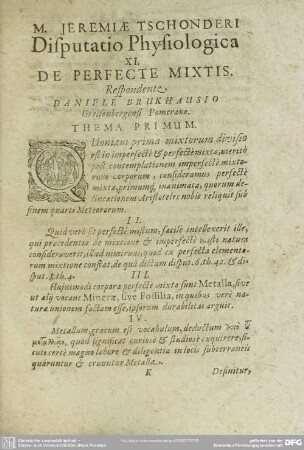 M. JEREMIÆ TSCHONDERI
Disputatio Physiologica
XI.
DE PERFECTE MIXTIS.
Respondente
DANIELE BRUKHAUSIO
Greifenbergensi Pomerano.
THEMA PRIMUM.
QUoniam prima mixtorum divisio
est in imperfectè & perfectè mixta, meritò
post contemplationem imperfectè mixto-
rum corporum, consideramus perfectè
mixta, primumq́; inanimata, quorum de-
lineationem Aristoteles nobis reliquit sub
finem quarti Meteororum.
II.
Quid verò sit perfectè mistum, facilè intellexerit ille,
qui præcedentia de mixtione & imperfectè misti natura
consideraverit, illud nimirum, quod ex perfecta elemento-
rum mixtione constat, de quâ dictum disput. 6. th. 42. & di-
sput. 8. th. 4.
III.
Hujusmodi corpora perfectè mixta sunt Metalla, sive
ut alij vocant Mineræ, sive Fossilia, in quibus veré na-
turæ unionem factam esse, ipsorum durabilitas arguit.
IV.
Metallum, græcum est vocabulum, deductum
quod significat curiosè & studiosè exquirere, si-
cuti certè magno labore & diligentia in locis subterraneis
quæruntur & eruuntur Metalla.
K Definitur,